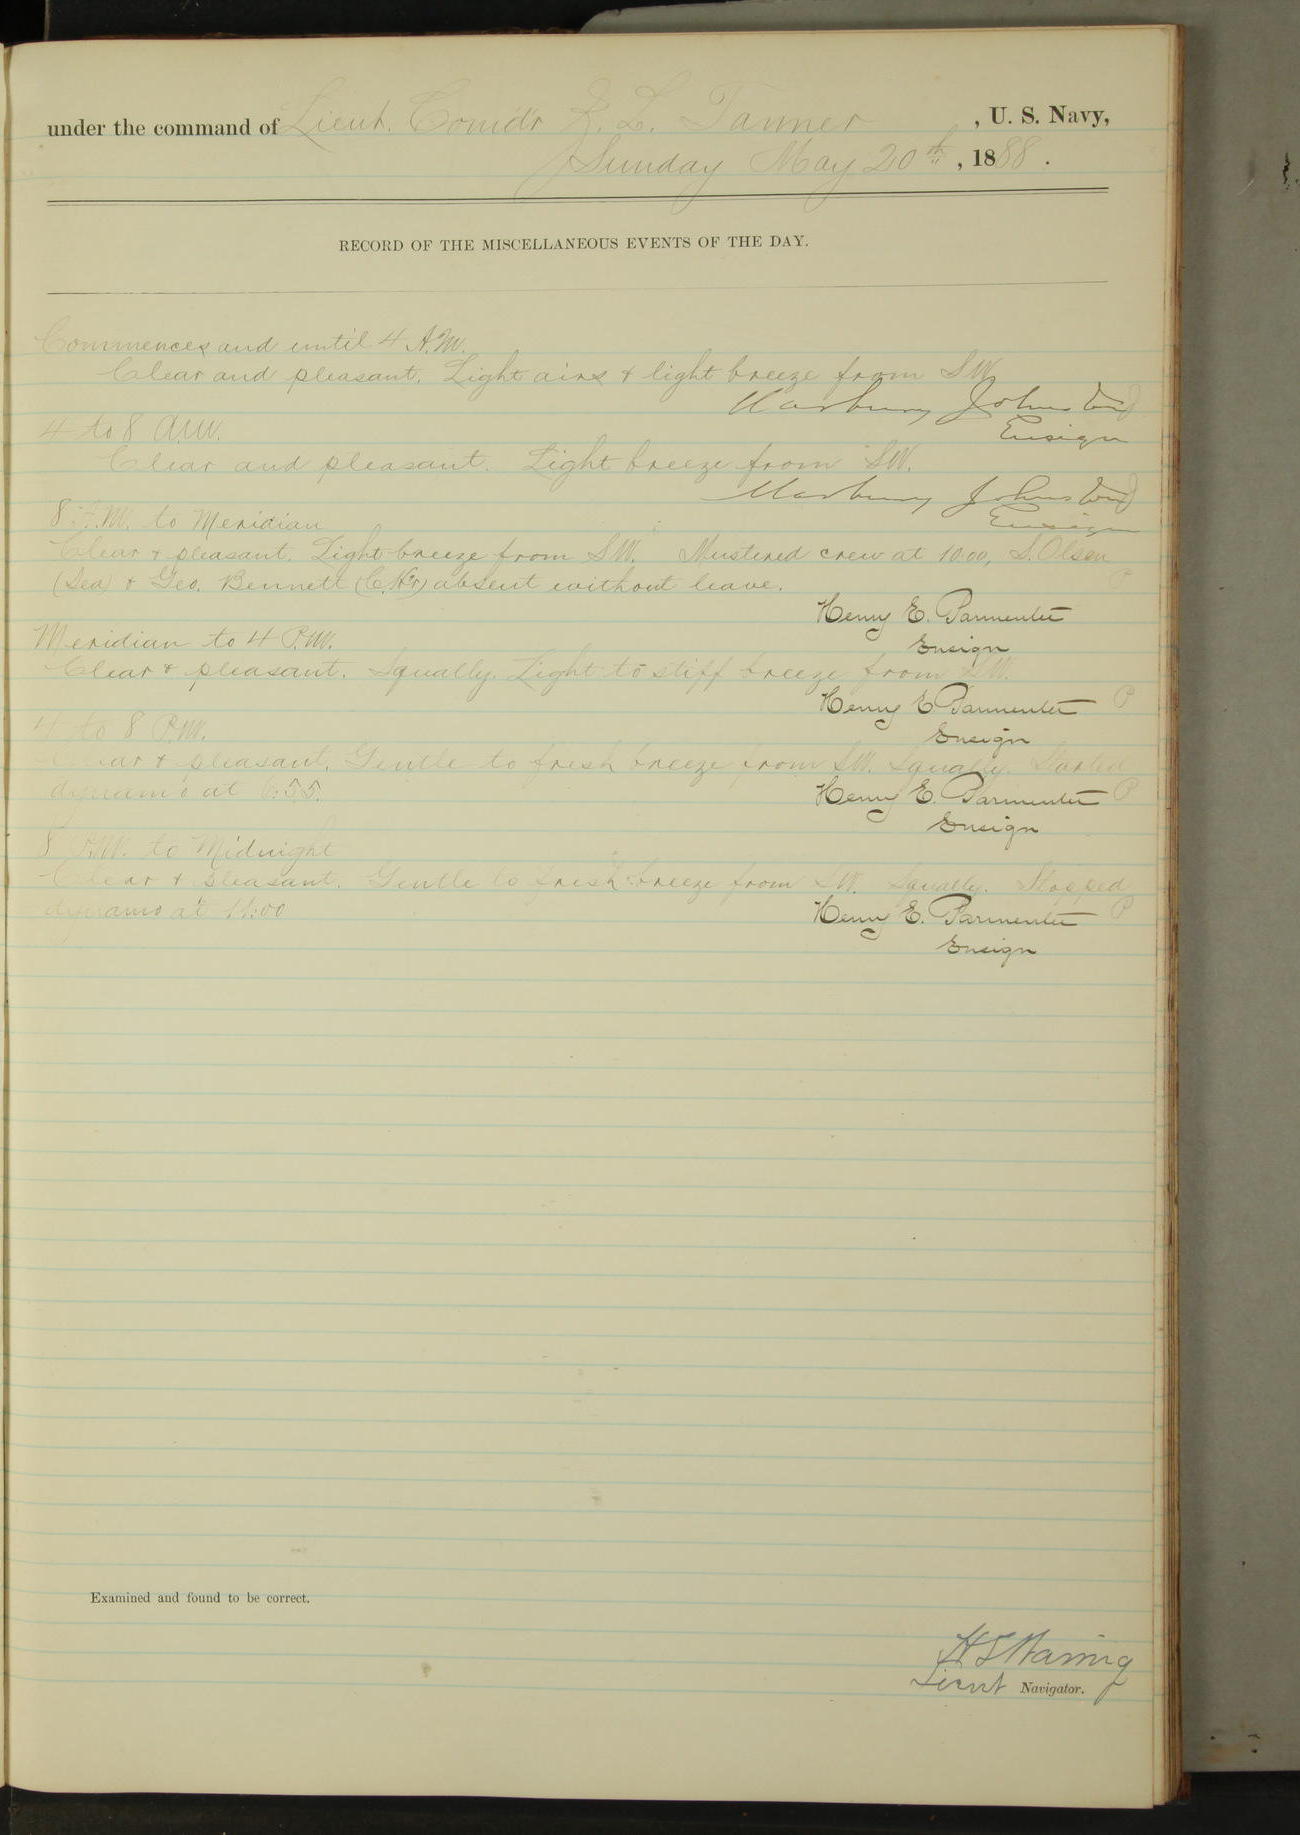 under the command of Lieut. Comdr Z. L. Tanner, U. S. Navy,
Sunday May 20th, 1888.
RECORD OF THE MISCELLANEOUS EVENTS OF THE DAY.
Commences and until 4 A.M.
Clear and pleasant. Light airs & light breeze from SW
Marbury Johnston
Ensign
4 to 8 A.M.
Clear and pleasant. Light breeze from SW.
Marbury Johnston
Ensign
8 A.M. to Meridian
Clear & pleasant. Light breeze from S.W. Mustered crew at 10.00, S. Olsen
(Sea) & Geo. Bennett absent without leave.
Henry E. Parmenter
Ensign
Meridian to 4 P.M.
Clear & pleasant. Squally. Light to stiff breeze from S.W.
Henry E Parmenter
Ensign
P
4 to 8 P.M.
Clear & pleasant. Gentle to fresh breeze from SW. Squally. Started
dynamo at 6:55.
Henry E. Parmenter
Ensign
P
8 P.M. to Midnight
Clear & pleasant. Gentle to fresh breeze from SW. Squally. Stopped
dynamo at 11:00
Henry E. Parmenter
Ensign
P
Examined and found to be correct.
H S Waring
Lieut Navigator.